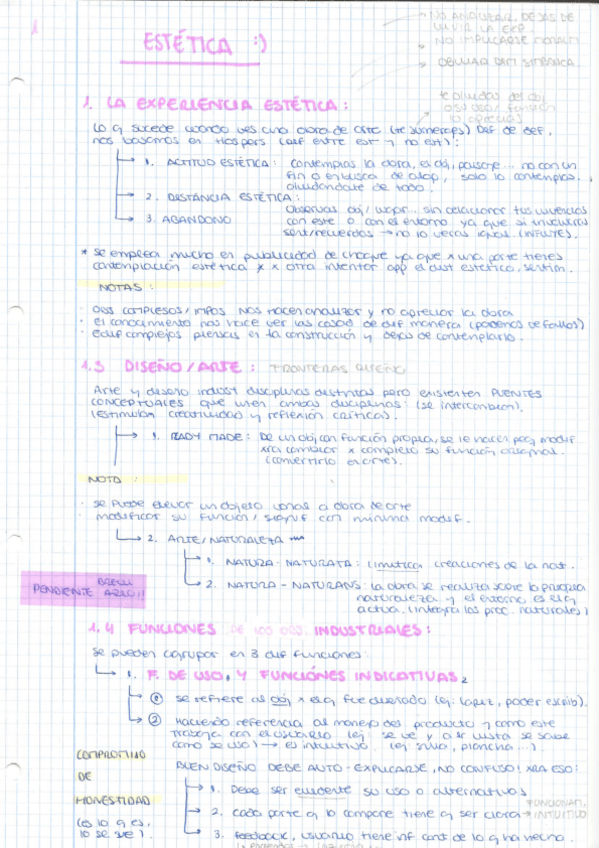 1
ESTÉTICA :)
→ NO ANALIZAR, DEJAS DE VIVIR LA EXP.
→ NO IMPLICARSE
→ OBVIAR
te olvidas del obj
1. LA EXPERIENCIA ESTÉTICA:
Lo q sucede cuando ves una obra de arte (te sumerges) Def de def,
nos basamos en Hospers (dif entre est y no est):
1. ACTITUD ESTÉTICA: Contemplas la obra, el obj, paisaje... no con un
fin o en busca de algo, solo lo contemplas,
olvidándote de todo.
2. DISTANCIA ESTÉTICA:
Observas obj/lugar... sin relacionar tus vivencias
3. ABANDONO
con este o con el entorno ya que si involucras
sent/recuerdos → no lo verás igual (INFLUYES).
* se emplea mucho en publicidad de choque ya que x una parte tienes
contemplación estética x x otra intentar app el dist estética, sentim.
NOTAS:
· obs complejos/impos nos hacen analizar y no apreciar la obra
· el conocimiento nos hace ver las cosas de dif manera (podemos ver fallos)
· edif complejos piensas en la construcción y dejas de contemplarlo.
1.3 DISEÑO/ARTE: FRONTERAS
Arte y diseño indust disciplinas distintas pero existen PUENTES
CONCEPTUALES que unen ambas disciplinas: (se intercambian).
(estimulan creatividad y reflexión críticas).
1. READY MADE: De un obj con función propia, se le hacen peq modif
xra cambiar x completo su función original.
(convertirlo en arte).
NOTA:
· se puede elevar un objeto banal a obra de arte
· modificar su función/signif con mínima modif.
2. ARTE/NATURALEZA
1. NATURA-NATURATA: (imitica) creaciones de la nat.
2. NATURA-NATURANS: la obra se realiza sobre la propia
naturaleza y el entorno es el q
actua. (integra los proc. naturales)
PENDIENTE
1.4 FUNCIONES DE LOS OBJ. INDUSTRIALES:
Se pueden agrupar en 3 dif funciones:
1. F. DE USO, Y FUNCIONES INDICATIVAS,
① se refiere al obj x el q fue diseñado (ej: lapiz, poder escrib).
② Haciendo referencia al manejo des producto y como este
trabaja con el usuario (ej: se ve y a 1r vista se sabe
como se usa) → es intuitivo. (ej: silla, plancha...)
COMPROMISO
DE
HONESTIDAD
(es lo q es,
lo se ve).
BUEN DISEÑO DEBE AUTO-EXPLICARSE, NO CONFUSO! XRA ESO:
1. Debe ser evidente su uso o alternativas
2. cada parte q lo compone tiene q ser clara → INTUITIVO
3. feedback, usuario tiene inf cont de lo q ha hecho.